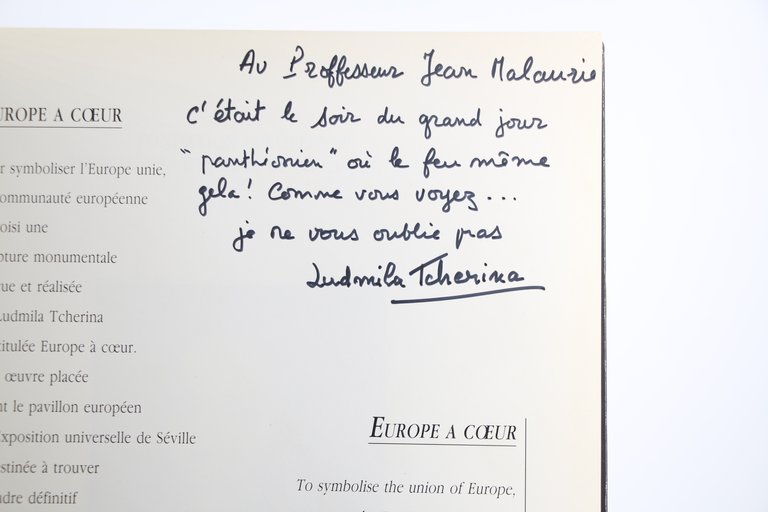 Au Proffesseur Jean Malaurie
c'était le soir du grand jour
"panthéonien" où le feu même
gela! Comme vous voyez...
je ne vous oublie pas
Ludmila Tcherina
EUROPE A CŒUR
symboliser l'Europe unie,
communauté européenne
une
monumentale
et réalisée
Ludmila Tcherina
Europe à cœur.
œuvre placée
le pavillon européen
Exposition universelle de Séville
à trouver
définitif
EUROPE A CŒUR
To symbolise the union of Europe,